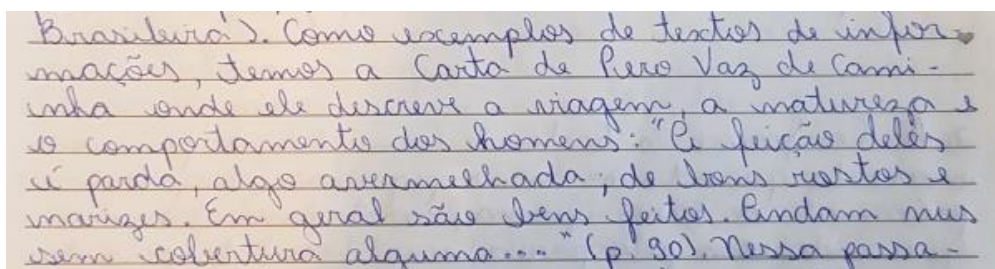 Brasileira). Como exemplos de textos de infor-
mações, temos a Carta de Pero Vaz de Cami-
nha onde ele descreve a viagem, a natureza e
o comportamento dos homens: "A feição deles
é parda, algo avermelhada; de bons rostos e
narizes. Em geral são bens feitos. Andam nus
sem cobertura alguma..." (p. 90). Nessa passa-